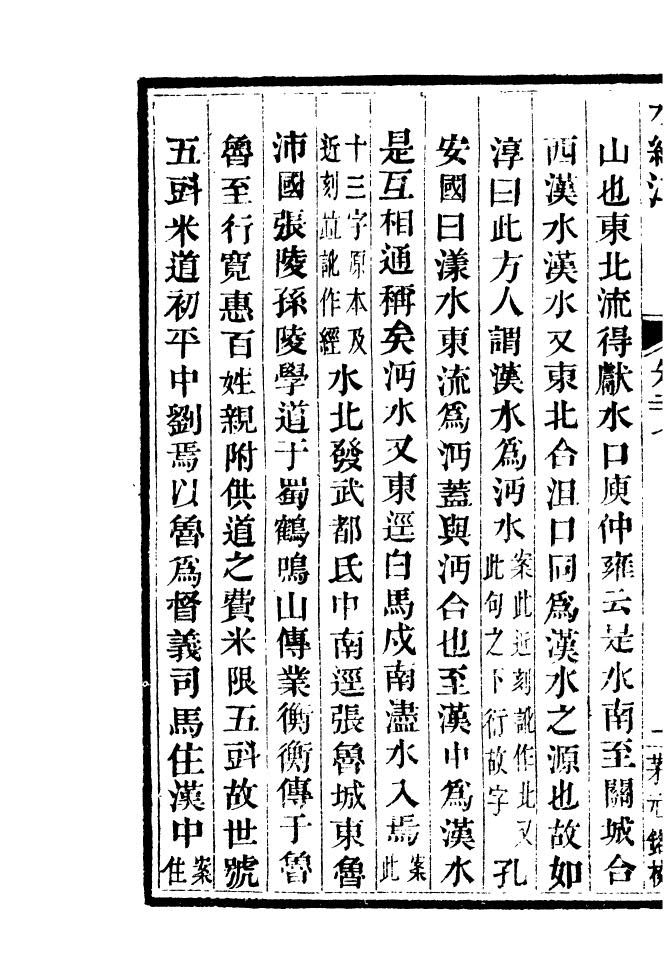 山也東北流得獻水口庾仲雍云是水南至關城合
西漢水漢水又東北合沮口同爲漢水之源也故如
淳曰此方人謂漢水爲沔水案此近刻訛作北又此句之下衍故字孔
安國曰漾水東流爲沔蓋與沔合也至漢中爲漢水
是互相通稱矣沔水又東逕白馬戍南濜水入焉案此
十三字原本及近刻並訛作經水北發武都氐中南逕張魯城東魯
沛國張陵孫陵學道于蜀鶴鳴山傳業衡衡傳于魯
魯至行寬惠百姓親附供道之費米限五㪷故世號
五㪷米道初平中劉焉以魯爲督義司馬住漢中案住